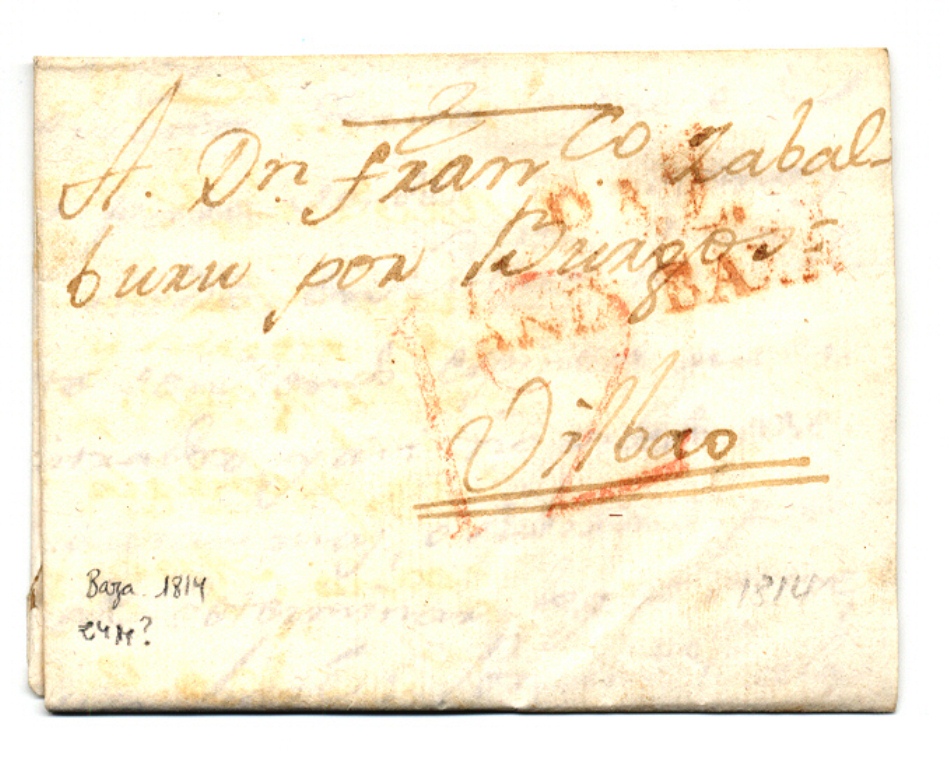 A. Dn. Franco. Zabal-
buru por Burgos
Vilbao
12
Baza 1814
1814